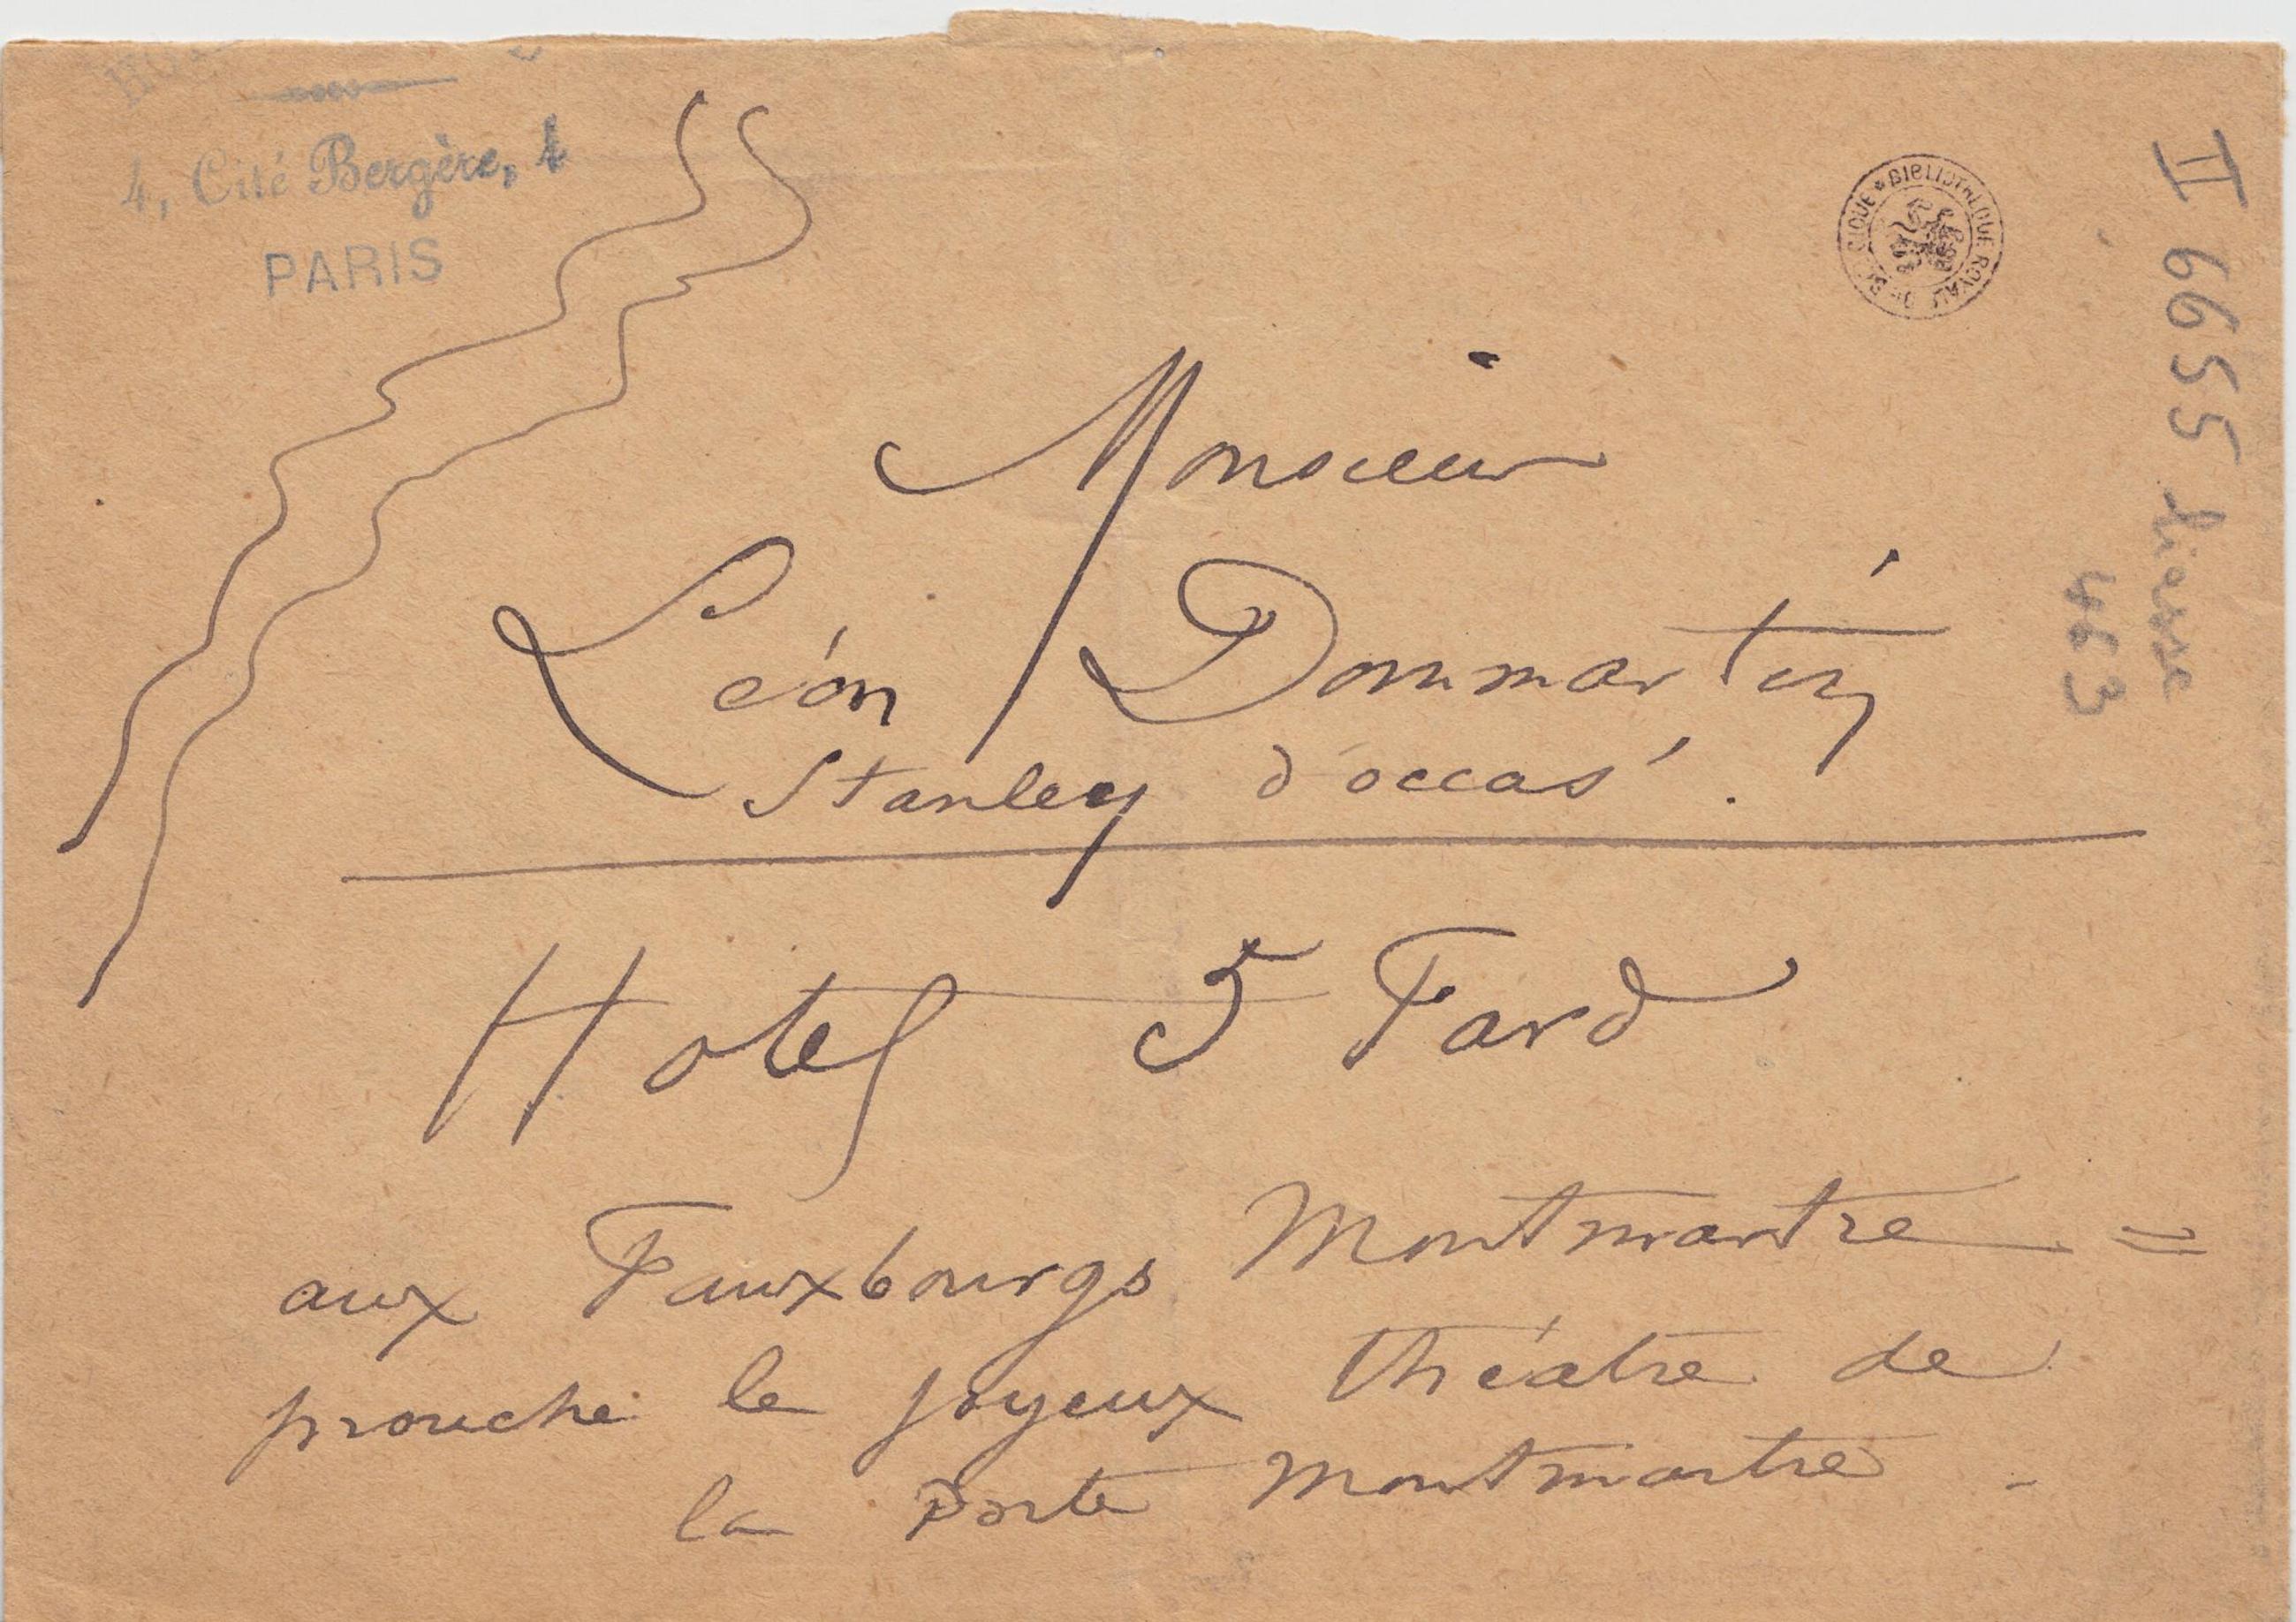 4, Cité Bergère, 4
PARIS
BIBLIOTHEQUE ROYALE DE BELGIQUE
II 6655 liasse
463
Monsieur
Léon Dommartin
Stanley d'occas'.
Hotel 5 Fard
aux Fauxbourgs Montmartre =
prouche le joyeux théatre de
la Porte Montmartre -